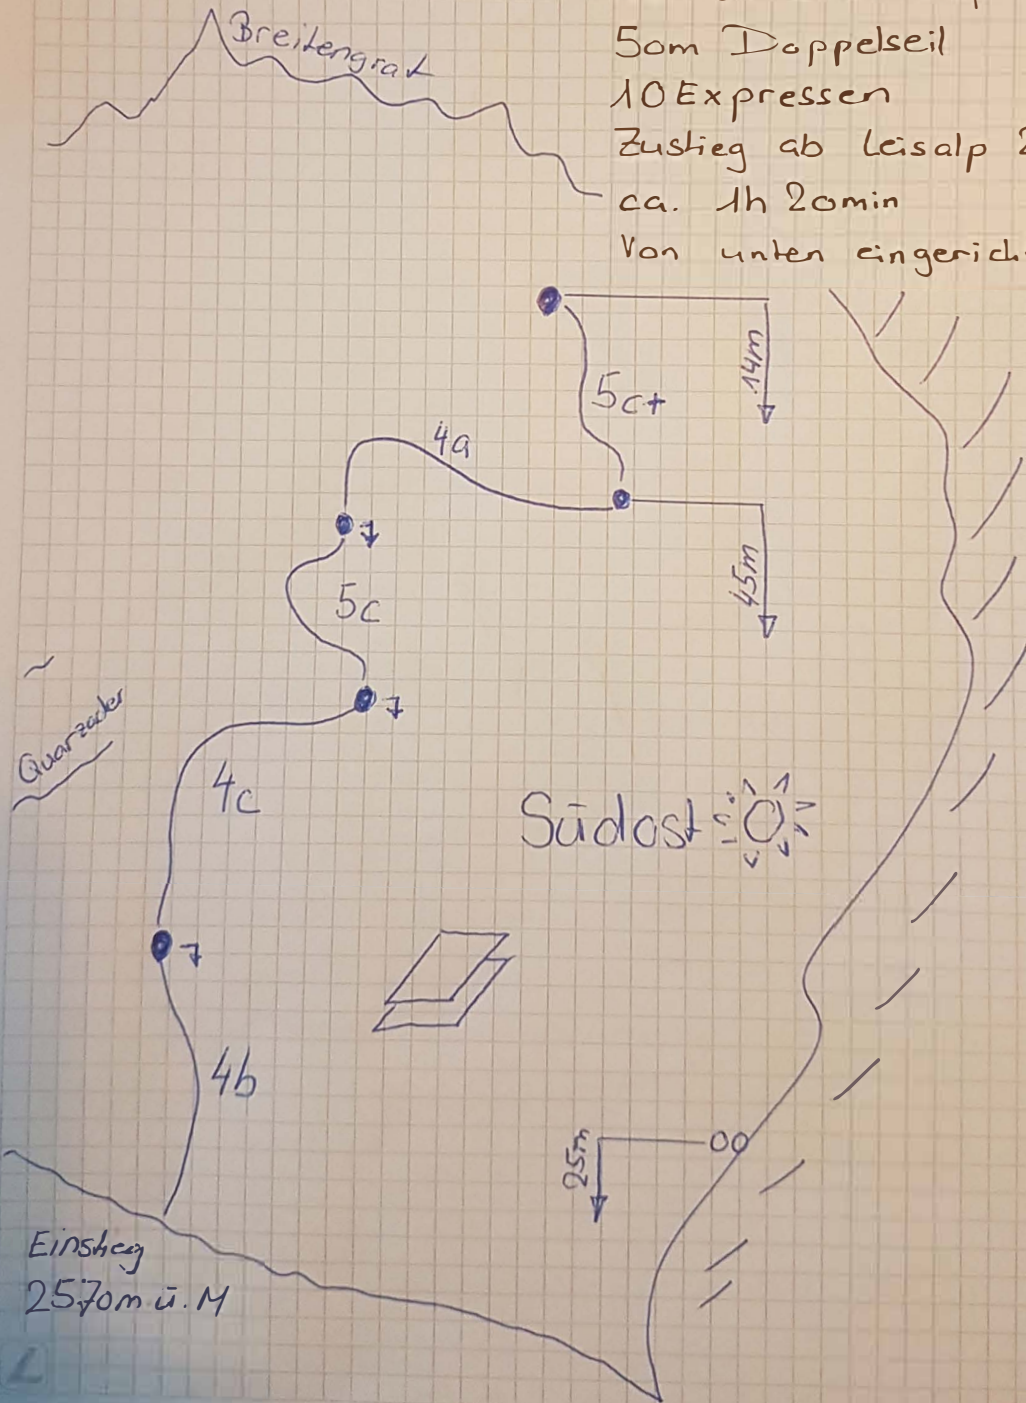 Breitengrat
50m Doppelseil
10 Expressen
Zustieg ab Leisalp
ca. 1h 20min
Von unten
14m
5c+
4a
45m
5c
Quarzader
4c
Südost
4b
25m
Einstieg
2570m ü. M